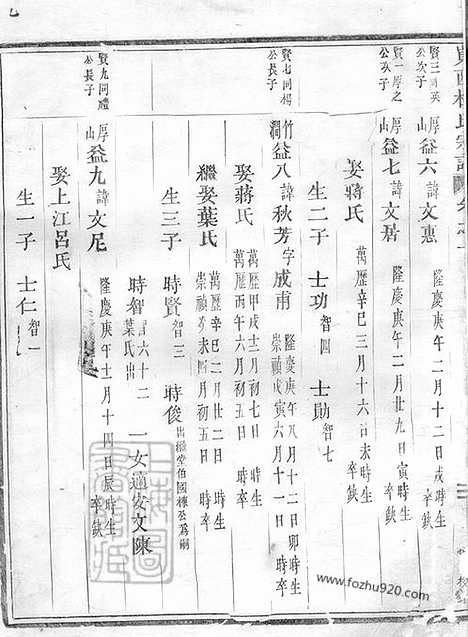 賢三
公次子
厚山
益六
諱文惠
隆慶庚午二月十二日戌時生
卒缺
賢一厚之
公次子
厚山
益七
諱文居
隆慶庚午二月廿九日寅時生
卒缺
娶蔣氏
萬歷辛巳三月十六日未時生
卒缺
生二子 士功 智四 士勛 智七
賢七同楊
公長子
竹澗
益八
諱秋芳字成甫
隆慶庚午八月十二日卯時生
崇禎戊寅六月十一日 時卒
娶蔣氏
萬歷甲戌十二月初七日 時生
萬歷丙午六月初五日 時卒
繼娶葉氏
萬歷辛巳二月廿二日 時生
崇禎癸未四月初五日 時卒
生三子 時賢 智三 時俊 出繼堂伯國棟公爲嗣
時智 言六十二 葉氏出 一女適安文陳
賢九同禮
公長子
厚山
益九
諱文尼
隆慶庚午十一月十四日辰時生
卒缺
娶上江呂氏
生一子 士仁 智一
www.fozhu920.com